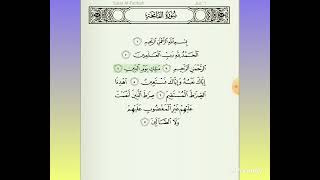 Surat Al-Fatihah
Juz' 1
سُورَةُ الفَاتِحَةِ
بِسْمِ اللَّهِ الرَّحْمَٰنِ الرَّحِيمِ ١
الْحَمْدُ لِلَّهِ رَبِّ الْعَالَمِينَ ٢
الرَّحْمَٰنِ الرَّحِيمِ ٣ مَالِكِ يَوْمِ الدِّينِ ٤
إِيَّاكَ نَعْبُدُ وَإِيَّاكَ نَسْتَعِينُ ٥ اهْدِنَا
الصِّرَاطَ الْمُسْتَقِيمَ ٦ صِرَاطَ الَّذِينَ أَنْعَمْتَ
عَلَيْهِمْ غَيْرِ الْمَغْضُوبِ عَلَيْهِمْ
وَلَا الضَّالِّينَ ٧